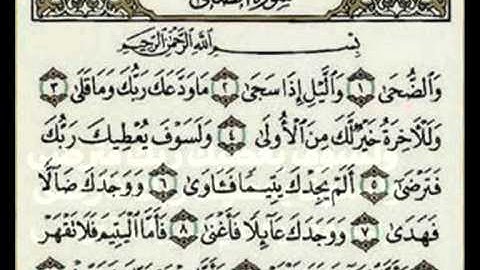 سورة الضحى
بِسْمِ اللَّهِ الرَّحْمَٰنِ الرَّحِيمِ
وَالضُّحَىٰ ١ وَاللَّيْلِ إِذَا سَجَىٰ ٢ مَا وَدَّعَكَ رَبُّكَ وَمَا قَلَىٰ ٣
وَلَلْآخِرَةُ خَيْرٌ لَّكَ مِنَ الْأُولَىٰ ٤ وَلَسَوْفَ يُعْطِيكَ رَبُّكَ
فَتَرْضَىٰ ٥ أَلَمْ يَجِدْكَ يَتِيمًا فَآوَىٰ ٦ وَوَجَدَكَ ضَالًّا
فَهَدَىٰ ٧ وَوَجَدَكَ عَائِلًا فَأَغْنَىٰ ٨ فَأَمَّا الْيَتِيمَ فَلَا تَقْهَرْ